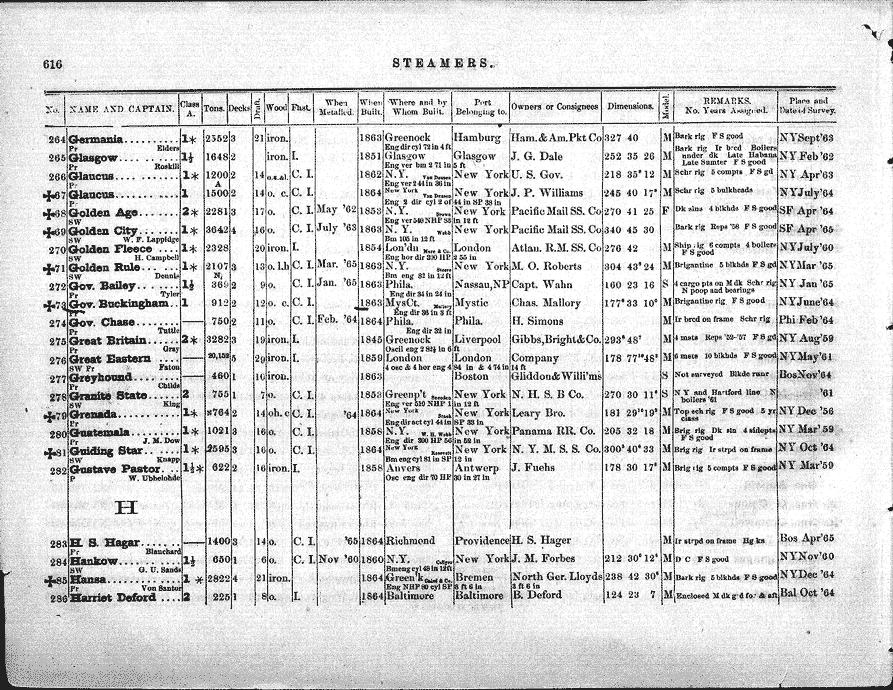 616 STEAMERS.
No. NAME AND CAPTAIN. Class A. Tons. Decks Draft. Wood Fast. When Metalled. When Built. Where and by Whom Built. Port Belonging to. Owners or Consignees Dimensions. Model. REMARKS. No. Years Assigned. Place and Date of Survey.
264 Germania 1* 2552 3 21 iron. 1863 Greenock Hamburg Ham. & Am. Pkt Co 327 40 M Bark rig F S good NY Sept '63
Pr Elders Eng dir cyl 72 in 4 ft
265 Glasgow 1½ 1648 2 iron. I. 1851 Glasgow Glasgow J. G. Dale 252 35 26 M Bark rig Ir bred Boilers under dk Late Habana Late Sumter F S good NY Feb '62
Pr Roskill Eng ver bm 2 71 in 5 ft
266 Glaucus 1* 1200 2 14 C. I. 1862 N.Y. New York U. S. Gov. 218 35*12 M Schr rig 5 compts F S gd NY Apr '63
Pr Eng ver 2 44 in 36 in
67 Glaucus 1 1500 2 14 o. c. C. I. 1864 New York New York J. P. Williams 245 40 17* M Schr rig 5 bulkheads NY July '64
Pr Eng 2 dir cyl 2 of 44 in SP 38 in
68 Golden Age 2* 2281 3 17 o. C. I. May '62 1853 N.Y. New York Pacific Mail SS. Co 270 41 25 F Dk sins 4 blkhds F S good SF Apr '64
SW Eng ver 540 NHP 85 in 12 ft
69 Golden City 1* 3642 4 16 o. C. I. July '63 1863 N.Y. New York Pacific Mail SS. Co 340 45 30 Bark rig Reps '58 F S good SF Apr '64
SW W. F. Lappidge Bm 105 in 12 ft
270 Golden Fleece 1* 2328 20 iron. I. 1854 Lon'dn London Atlan. R.M. SS. Co 276 42 M Ship rig 6 compts 4 boilers F S good NY July '60
SW H. Campbell Eng hor dir 300 HP 2 55 in
71 Golden Rule 1* 2107 3 13 o. l.h C. I. Mar. '65 1863 N.Y. New York M. O. Roberts 304 43*24 M Brigantine 5 blkhds F S gd NY Mar '65
SW Dennis Bm eng 82 in 12 ft
272 Gov. Bailey 1½ 369 2 10 o. C. I. Jan. '65 1863 Phila. Nassau, NP Capt. Wahn 160 23 16 S 4 cargo pts on M dk Schr rig N poop and bearings NY Jan '65
Pr Tyler Eng dir 34 in 24 in
73 Gov. Buckingham 1 912 2 12 o. c. C. I. 1863 Mys Ct. Mystic Chas. Mallory 177*33 10* M Brigantine rig F S good NY June '64
Pr Eng dir 36 in 3 ft
274 Gov. Chase 750 2 11 o. C. I. Feb. '64 1864 Phila. Phila. H. Simons M Ir bred on frame Schr rig Phi Feb '64
Pr Tuttle Eng dir 32 in
275 Great Britain 2* 3282 3 19 iron. I. 1845 Greenock Liverpool Gibbs, Bright & Co. 293*48* M 4 msts Reps '52-'57 F S gd NY Aug '59
Pr Gray Oscil eng 2 82½ in 6 ft
276 Great Eastern 20,159 5 29 iron. I. 1859 London London Company 178 77 10*48* M 6 msts 10 blkhds F S good NY May '61
SW Pr Paton 4 osc & 4 hor eng 4 84 in & 4 74 in 14 ft
277 Greyhound 460 1 10 iron. 1863 Boston Gliddon & Willi'ms S Not surveyed Blkde runr Bos Nov '64
Pr Childs
278 Granite State 2 755 1 7 o. C. I. 1853 Greenp't New York N. H. S. B Co. 270 30 11* S N Y and Hartford line N boilers '61 '61
SW King Eng ver 510 NHP 1 in 12 ft
79 Grenada 1* *764 2 14 oh. c C. I. '64 1864 New York New York Leary Bro. 181 29*10 19* M Top sch rig F S good 5 yr class NY Dec '56
Pr Eng dir act cyl 44 in SP 33 in
280 Guatemala 1* 1021 3 16 o. C. I. 1858 N.Y. New York Panama RR. Co. 205 32 18 M Brig rig Dk sin 4 sidepts F S good NY Mar '59
SW J. M. Dow Eng dir 300 HP 56 in 52 in
81 Guiding Star 1* 2595 3 16 o. C. I. 1864 New York New York N. Y. M. S. S. Co. 300*40*33 M Brig rig Ir strpd on frame NY Oct '64
SW Knapp Bm eng cyl 81 in SP 12 in
282 Gustave Pastor 1½* 622 2 16 iron. I. 1858 Anvers Antwerp J. Fuehs 178 30 17* M Brig rig 5 compts F S good NY Mar '59
P W. Ubbelohde Osc eng dir 70 HP 30 in 27 in
H
283 H. S. Hagar 1400 3 14 o. C. I. '65 1864 Richmond Providence H. S. Hager M Ir strpd on frame Hg ks Bos Apr '65
Pr Blanchard
284 Hankow 1½ 650 1 6 o. C. I. Nov '60 1860 N.Y. New York J. M. Forbes 212 30*12* M D C F S good NY Nov '60
SW G. U. Sands Bm eng cyl 48 in 12 ft
85 Hansa 1* 2822 4 21 iron. 1864 Green'k Bremen North Ger. Lloyds 238 42 30* M Bark rig 5 blkhds F S good NY Dec '64
Pr Von Santor Eng NHP 80 cyl SP 8 ft 6 in 3 ft 6 in
286 Harriet Deford 2 225 1 8 o. I. 1864 Baltimore Baltimore B. Deford 124 23 7 M Enclosed M dk g'd for & aft Bal Oct '64